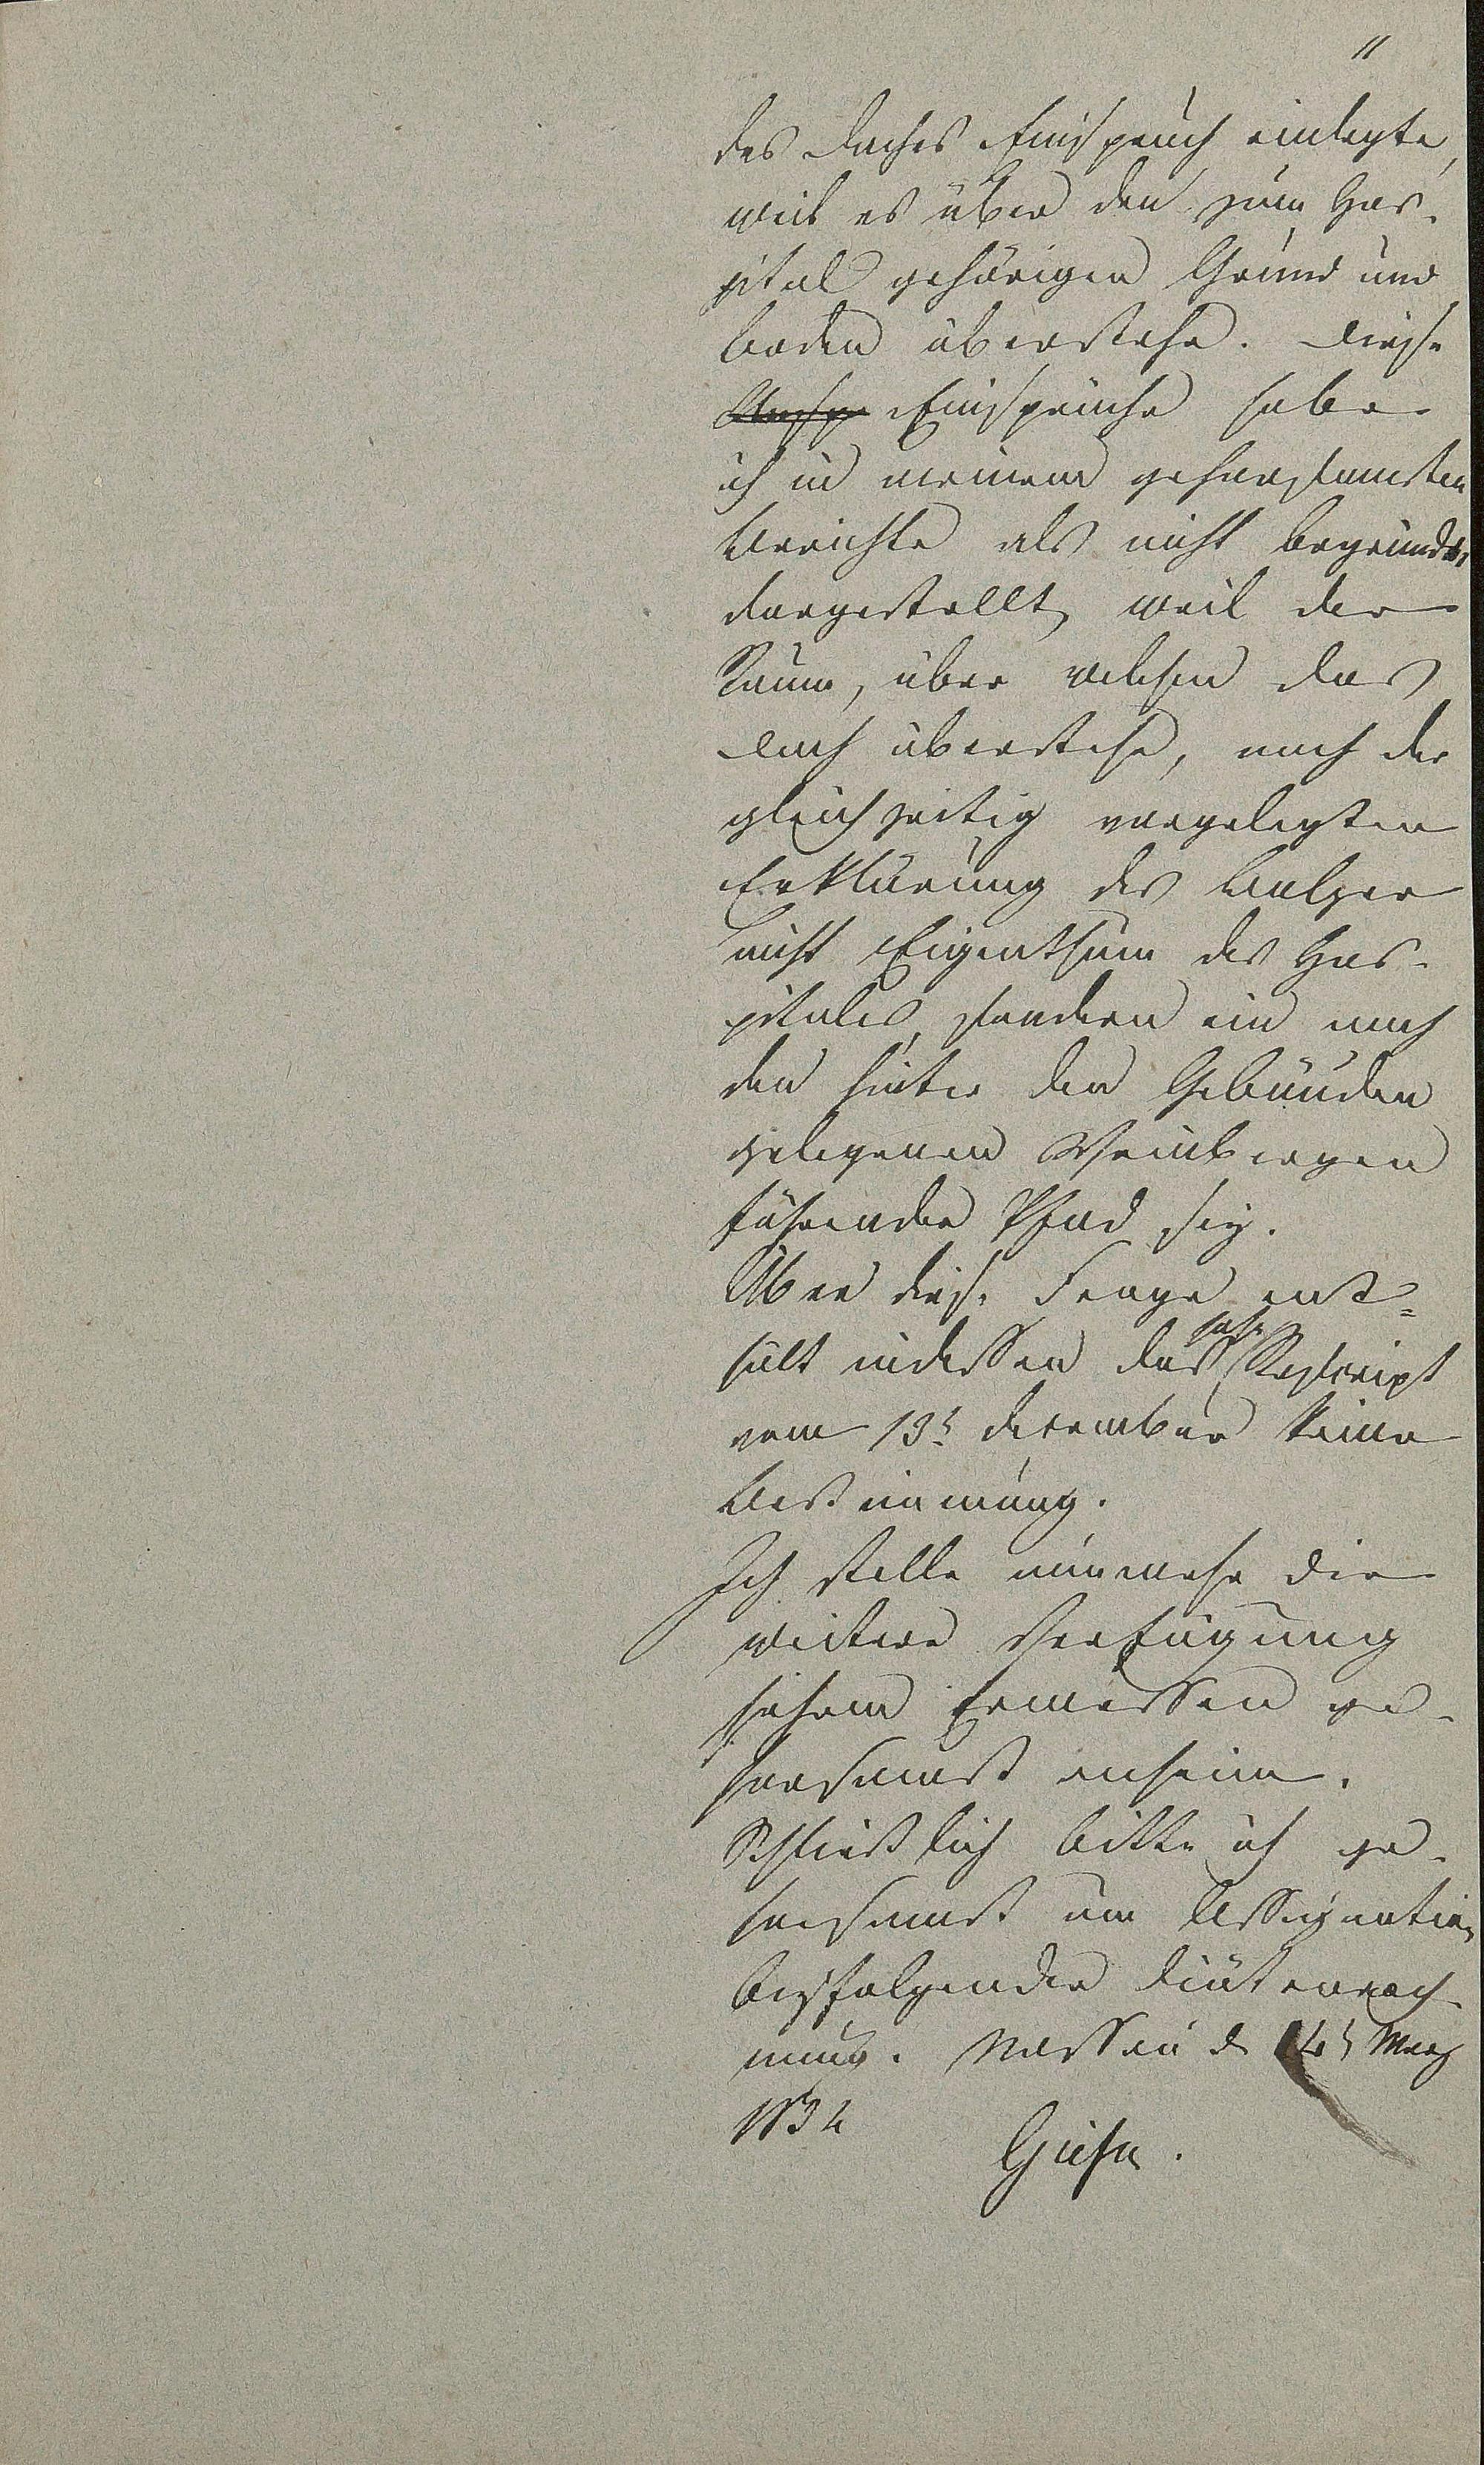 11
des Daches Einspruch einlegte,
weil es über den zum Hos-
pital gehörigen Grund und
Boden überstehe. Diese
Einsprüche habe
ich in meinem gehorsamsten
Berichte als nicht begründet
dargestellt, weil der
Raum, über welchen das
Dach überstehe, nach der
gleichzeitig vorgelegten
Erklärung des Balzer
nicht Eigenthum des Hos-
pitales, sondern ein nach
den hinter den Gebäuden
gelegenen Weinbergen
führender Pfad sey.
Über diese Frage ent=
hält indessen das hohe Rescript
vom 13t Dezember keine
Bestimmung.
Ich stelle nunmehr die
weitere Verfügung
hohem Ermessen ge-
horsamst anheim.
Schließlich bitte ich ge-
horsamst um Assignation
beyfolgender Diätenrech-
nung. Nassau d 14t März
1834